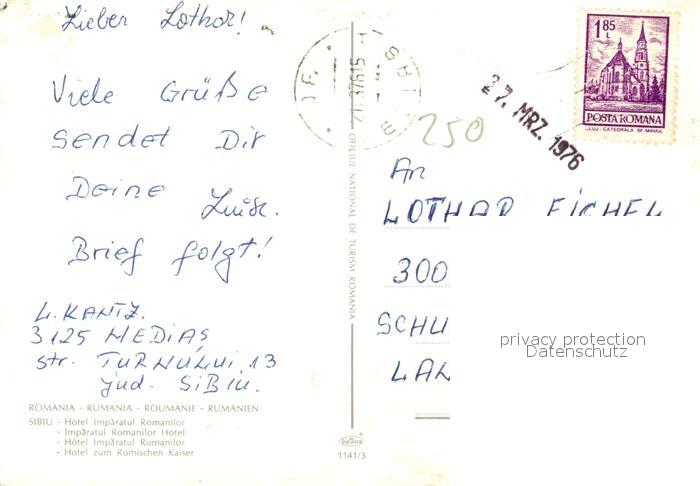 Lieber Lothar!
Viele Grüße
sendet Dir
Deine Luise.
Brief folgt!
L. KANTZ.
3125 MEDIAS
Str. TURNULUI 13
jud. SIBIU.
ROMANIA - RUMANIA - ROUMANIE - RUMÄNIEN
SIBIU - Hotel Împăratul Romanilor
- Impăratul Romanilor Hotel
- Hôtel Impăratul Romanilor
- Hotel zum Römischen Kaiser
OFICIUL NATIONAL DE TURISM ROMANIA
1141/3
27. MRZ. 1976
250
1.85 L
POSTA ROMANA
CLUJ - CATEDRALA SF. MIHAIL
An
LOTHAR EICHEL
300
SCHU
LAN
privacy protection
Datenschutz